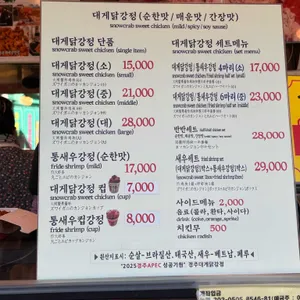 대게닭강정(순한맛/매운맛/간장맛)
snowcrab sweet chicken (mild/spicy/soy sauce)
대게닭강정 단품
snowcrab sweet chicken (single item)
대게닭강정(소) 15,000
snowcrab sweet chicken (small)
대게닭강정(중) 21,000
snowcrab sweet chicken (middle)
대게닭강정(대) 28,000
snowcrab sweet chicken (large)
통새우강정(순한맛)
fride shrimp (mild) 17,000
대게닭강정 컵 7,000
snowcrab sweet chicken (cup)
통새우컵강정 8,000
fride shrimp (cup)
대게닭강정 세트메뉴
snowcrab sweet chicken (set menu)
대게닭강정/통새우강정 4마리(소) 17,000
대게닭강정/통새우강정 6마리(중) 23,000
반반세트
28,000
새우세트
(대게닭강정1박스/통새우강정1박스) 29,000
사이드메뉴 2,000
음료(콜라,환타,사이다)
치킨무 500
chicken radish
원산지표시: 순살-브라질산,태국산, 새우-베트남,페루
"2025경주APEC 성공기원" 경주대게닭강정